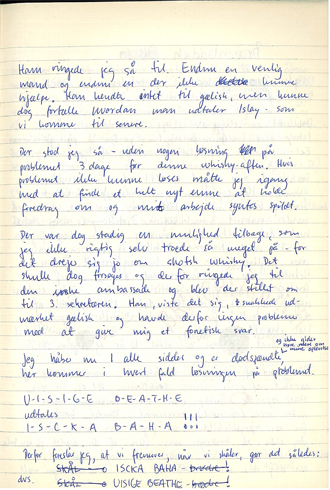 Ham ringede jeg så til. Endnu en venlig
mand og endnu en der ikke kunne
hjælpe. Han kendte intet til gælisk, men kunne
dog fortælle hvordan man udtaler Islay - som
vi kommer til senere.
Der stod jeg så - uden nogen løsning på
problemet 3 dage før denne whisky-aften. Hvis
problemet ikke kunne løses måtte jeg igang
med at finde et helt nyt emne at holde
foredrag om og mit arbejde syntes spildt.
Der var dog stadig en mulighed tilbage, som
jeg ikke rigtig selv troede så meget på - for
det drejer sig jo om skotsk whisky. Det
skulle dog forsøges og derfor ringede jeg til
den irske ambassade og blev der stillet om
til 3. sekretæren. Han, viste det sig, snakkede ud-
mærket gælisk og havde derfor ingen problemer
med at give mig et fonetisk svar.
og ikke gider
høre mere om
mine
Jeg håber nu I alle sidder og er dødspændte,
her kommer i hvert fald løsningen på problemet.
U-I-S-I-G-E B-E-A-T-H-E
udtales
I-S-C-K-A B-A-H-A !!!
Derfor foreslår jeg, at vi fremover, når vi skåler, gør det således:
SKÅL → ISCKA BAHA
dvs. SKÅL → UISIGE BEATHE